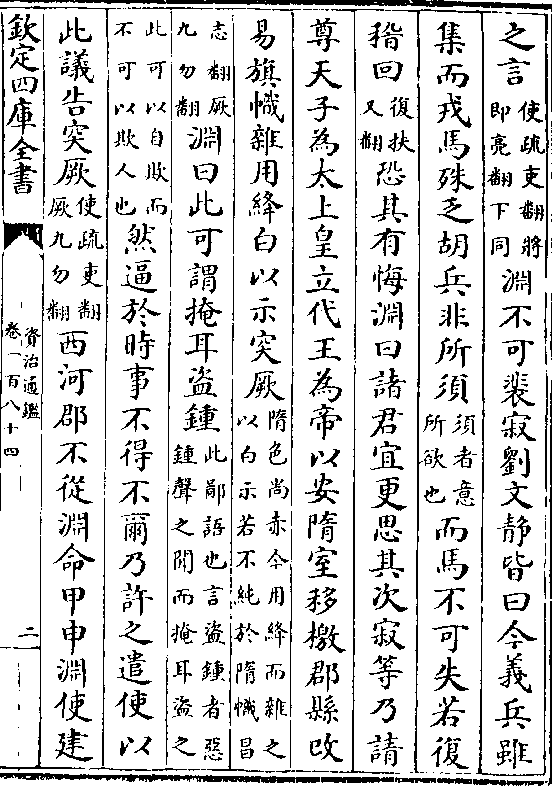 之言使疏吏翻將即亮翻下同淵不可裴寂劉文静皆曰今義兵雖
集而戎馬殊乏胡兵非所須須者意所欲也而馬不可失若復
稽回復扶又翻恐其有悔淵曰諸君宜更思其次寂等乃請
尊天子為太上皇立代王為帝以安隋室移檄郡縣改
易旗幟雜用絳白以示突厥隋色尚赤今用絳而雜之以白示若不純於隋幟昌
志翻厥九勿翻淵曰此可謂掩耳盗鍾此鄙語也言盗鍾者惡鍾聲之聞而掩耳盗之
此可以自欺而不可以欺人也然逼於時事不得不爾乃許之遣使以
此議告突厥使疏吏翻厥九勿翻西河郡不從淵命甲申淵使建
欽定四庫全書
資治通鑑
卷一百八十四
二